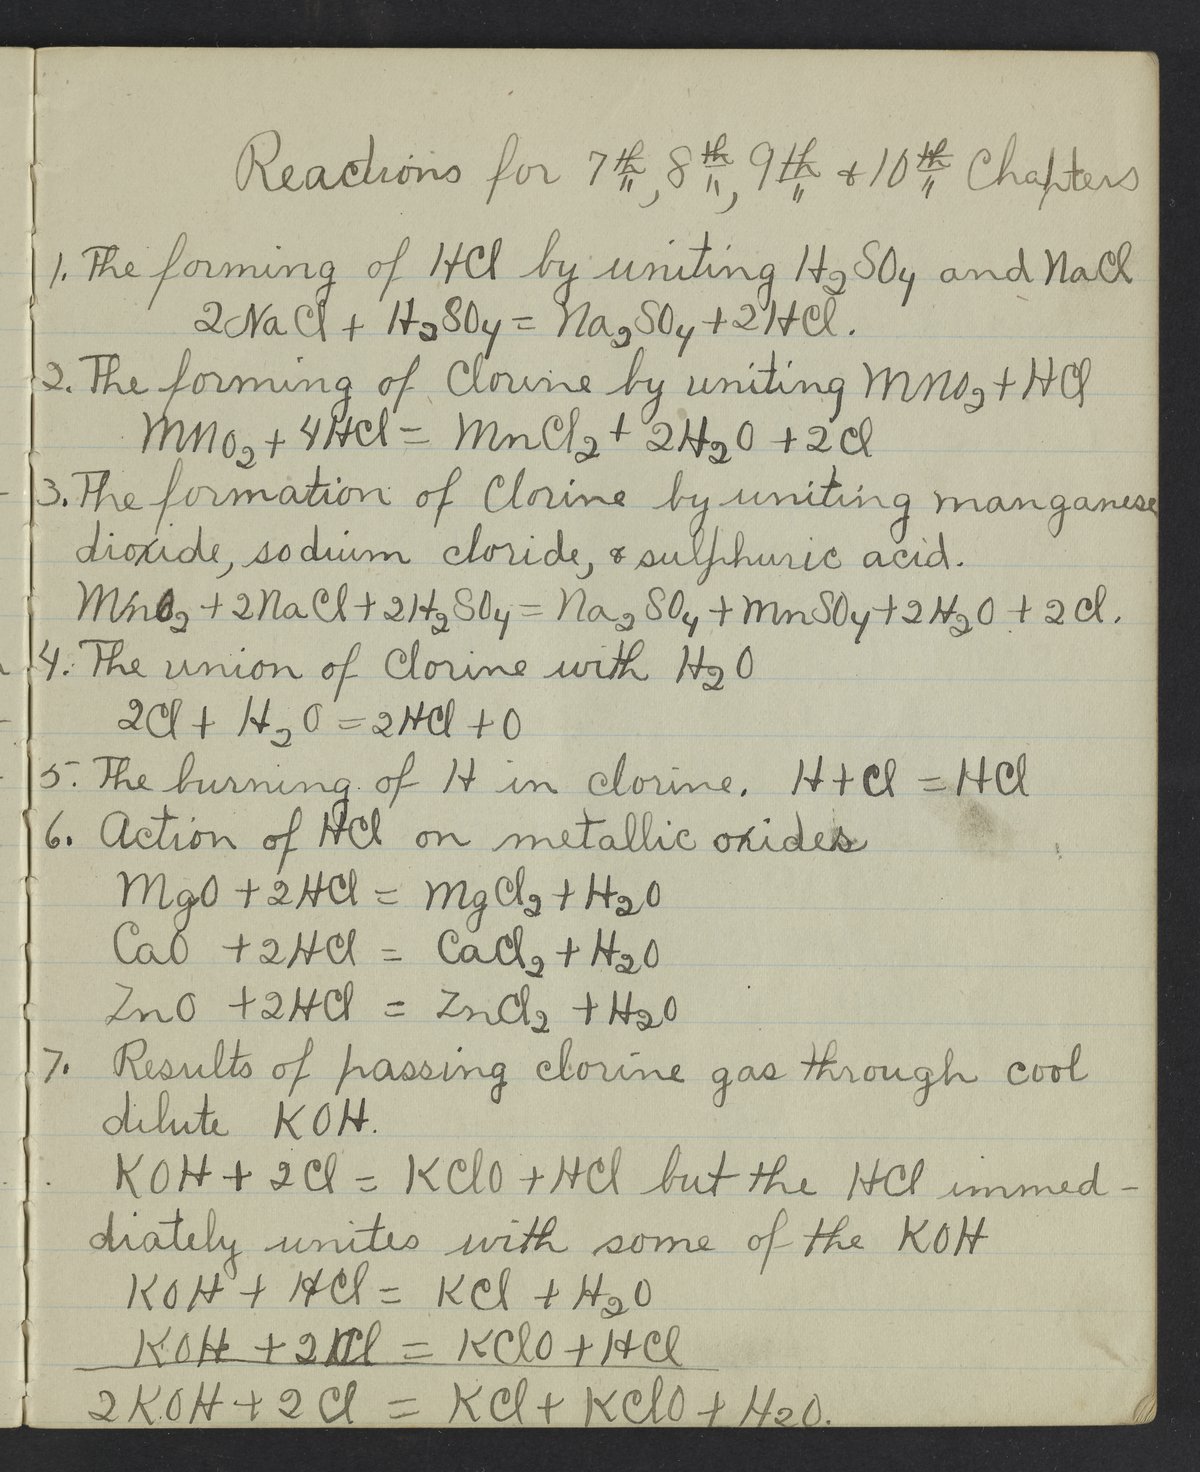 Reactions for 7th, 8th, 9th & 10th Chapters
1. The forming of HCl by uniting H₂SO₄ and NaCl
2NaCl + H₂SO₄ = Na₂SO₄ + 2HCl.
2. The forming of Clorine by uniting MNO₂ + HCl
MNO₂ + 4HCl = MnCl₂ + 2H₂O + 2Cl
3. The formation of Clorine by uniting manganese
dioxide, sodium cloride, & sulphuric acid.
MnO₂ + 2NaCl + 2H₂SO₄ = Na₂SO₄ + MnSO₄ + 2H₂O + 2Cl.
4. The union of Clorine with H₂O
2Cl + H₂O = 2HCl + O
5. The burning of H in clorine. H + Cl = HCl
6. Action of HCl on metallic oxides
MgO + 2HCl = MgCl₂ + H₂O
CaO + 2HCl = CaCl₂ + H₂O
ZnO + 2HCl = ZnCl₂ + H₂O
7. Results of passing clorine gas through cool
dilute KOH.
KOH + 2Cl = KClO + HCl but the HCl immed-
diately unites with some of the KOH
KOH + HCl = KCl + H₂O
KOH + 2Cl = KClO + HCl
2KOH + 2Cl = KCl + KClO + H₂O.